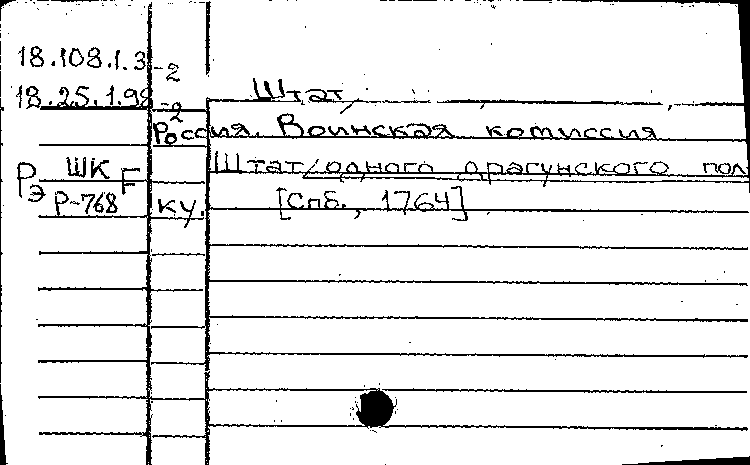 18.108.1.3-2
18.25.1.98-2
Штат
Россия. Воинская комиссия
Штат/одного драгунского пол
ку. [Спб., 1764]
Рэ ШК F
Р-768